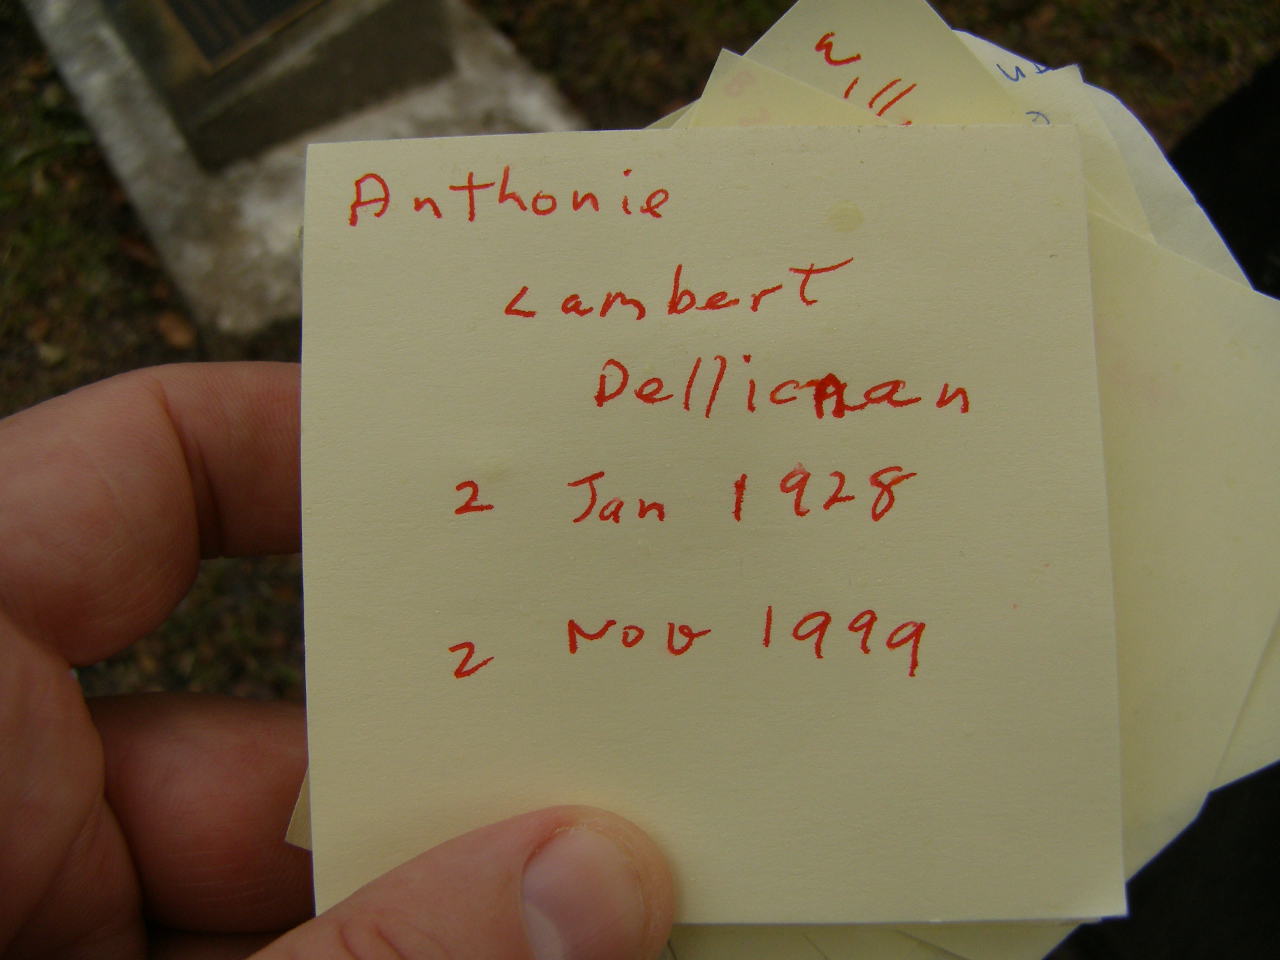 Anthonie
Lambert
Dellicnan
2 Jan 1928
2 Nov 1999